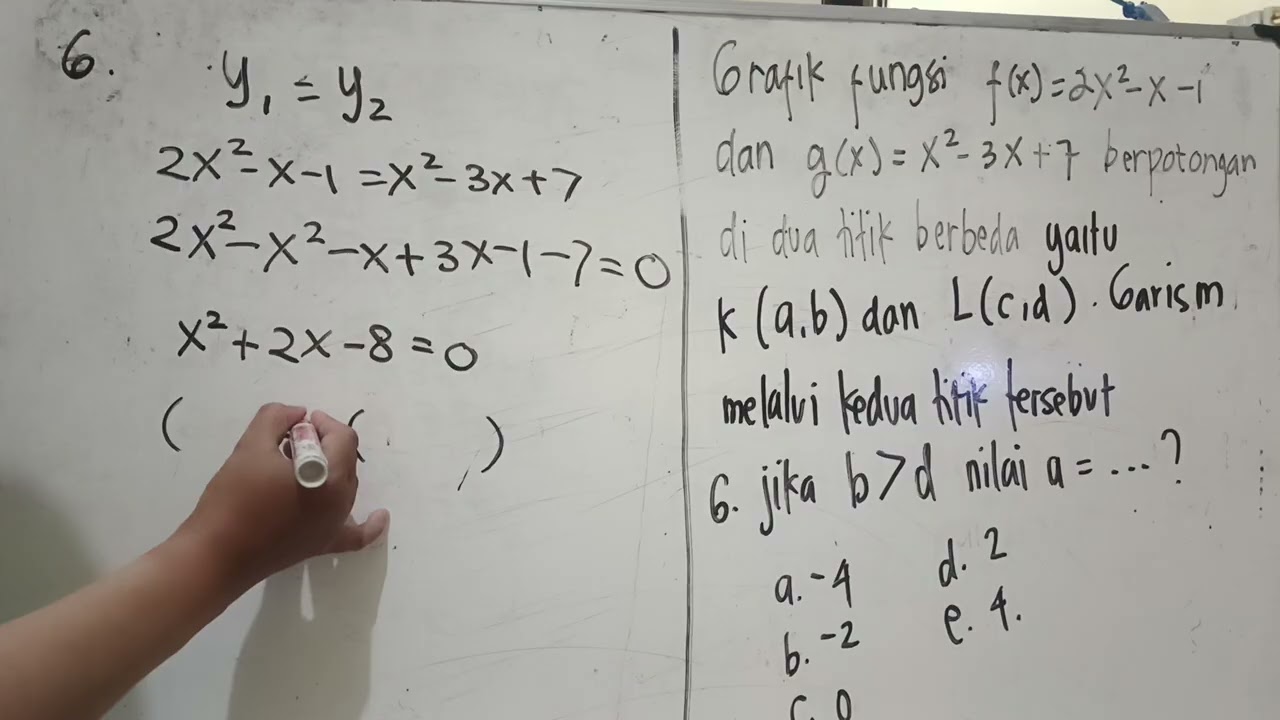 6.
y₁ = y₂
2x²-x-1=x²-3x+7
2x²-x²-x+3x-1-7=0
x²+2x-8=0
( ( )
Grafik fungsi f(x)=2x²-x-1
dan g(x)=x²-3x+7 berpotongan
di dua titik berbeda yaitu
K(a,b) dan L(c,d). Garis m
melalui kedua titik tersebut
6. jika b>d nilai a=...?
a. -4
b. -2
c. 0
d. 2
e. 4.